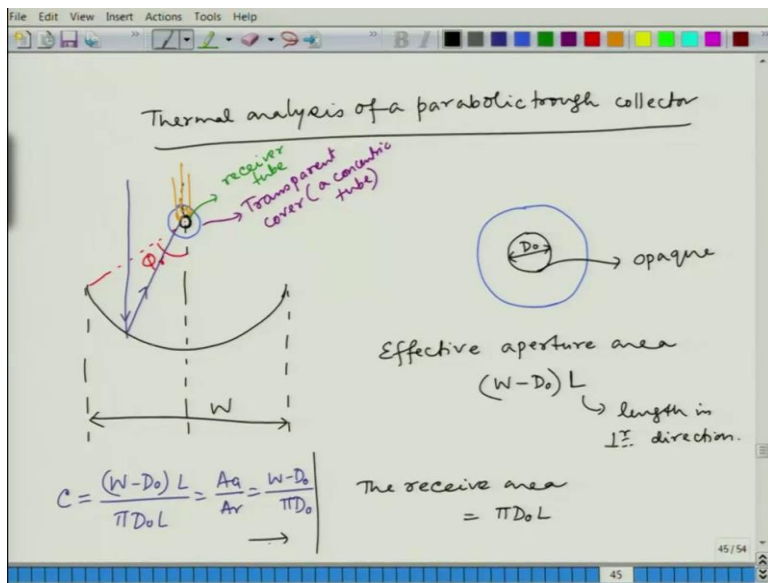 File Edit View Insert Actions Tools Help
Thermal analysis of a parabolic trough collector
receiver
tube
Transparent
cover (a concentric
tube)
Φr
W
D₀
opaque
Effective aperture area
(W-D₀) L
length in
⊥r direction.
C = (W-D₀) L / πD₀L = Aa / Ar = W-D₀ / πD₀
The receive area
= πD₀L
45/54
45